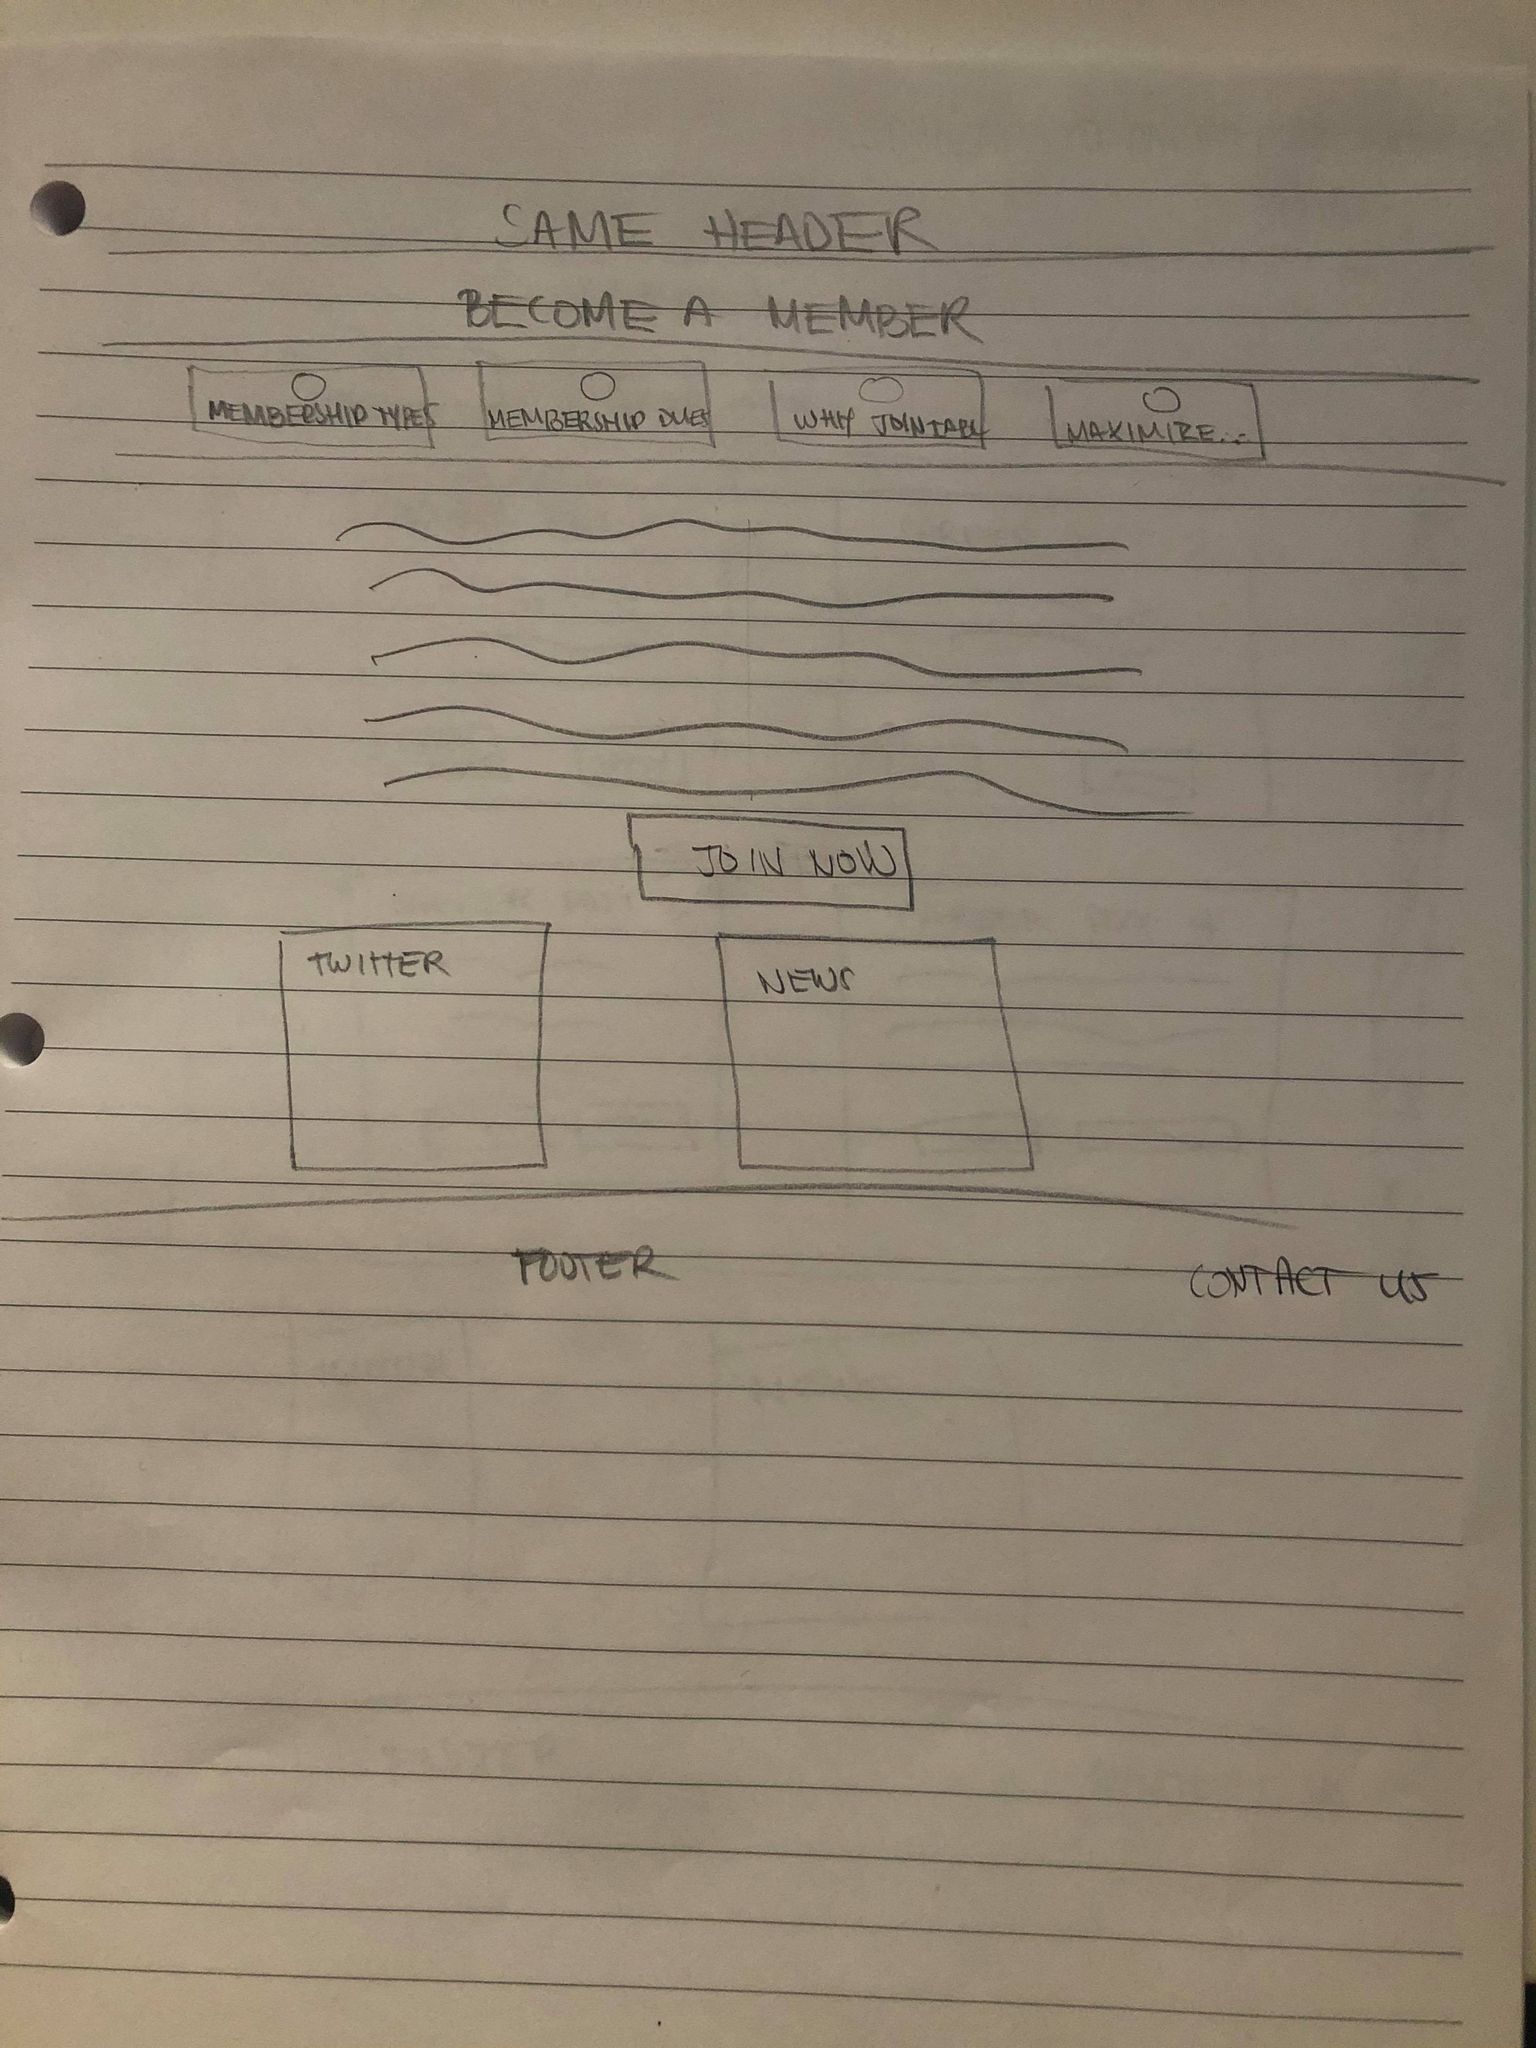 SAME HEADER
BECOME A MEMBER
MEMBERSHIP TYPES MEMBERSHIP DUES WHY JOIN MAXIMIZE...
JOIN NOW
TWITTER NEWS
FOOTER CONTACT US